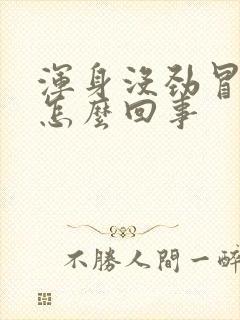 渾身沒勁冒
怎麼回事
不勝人間一醉